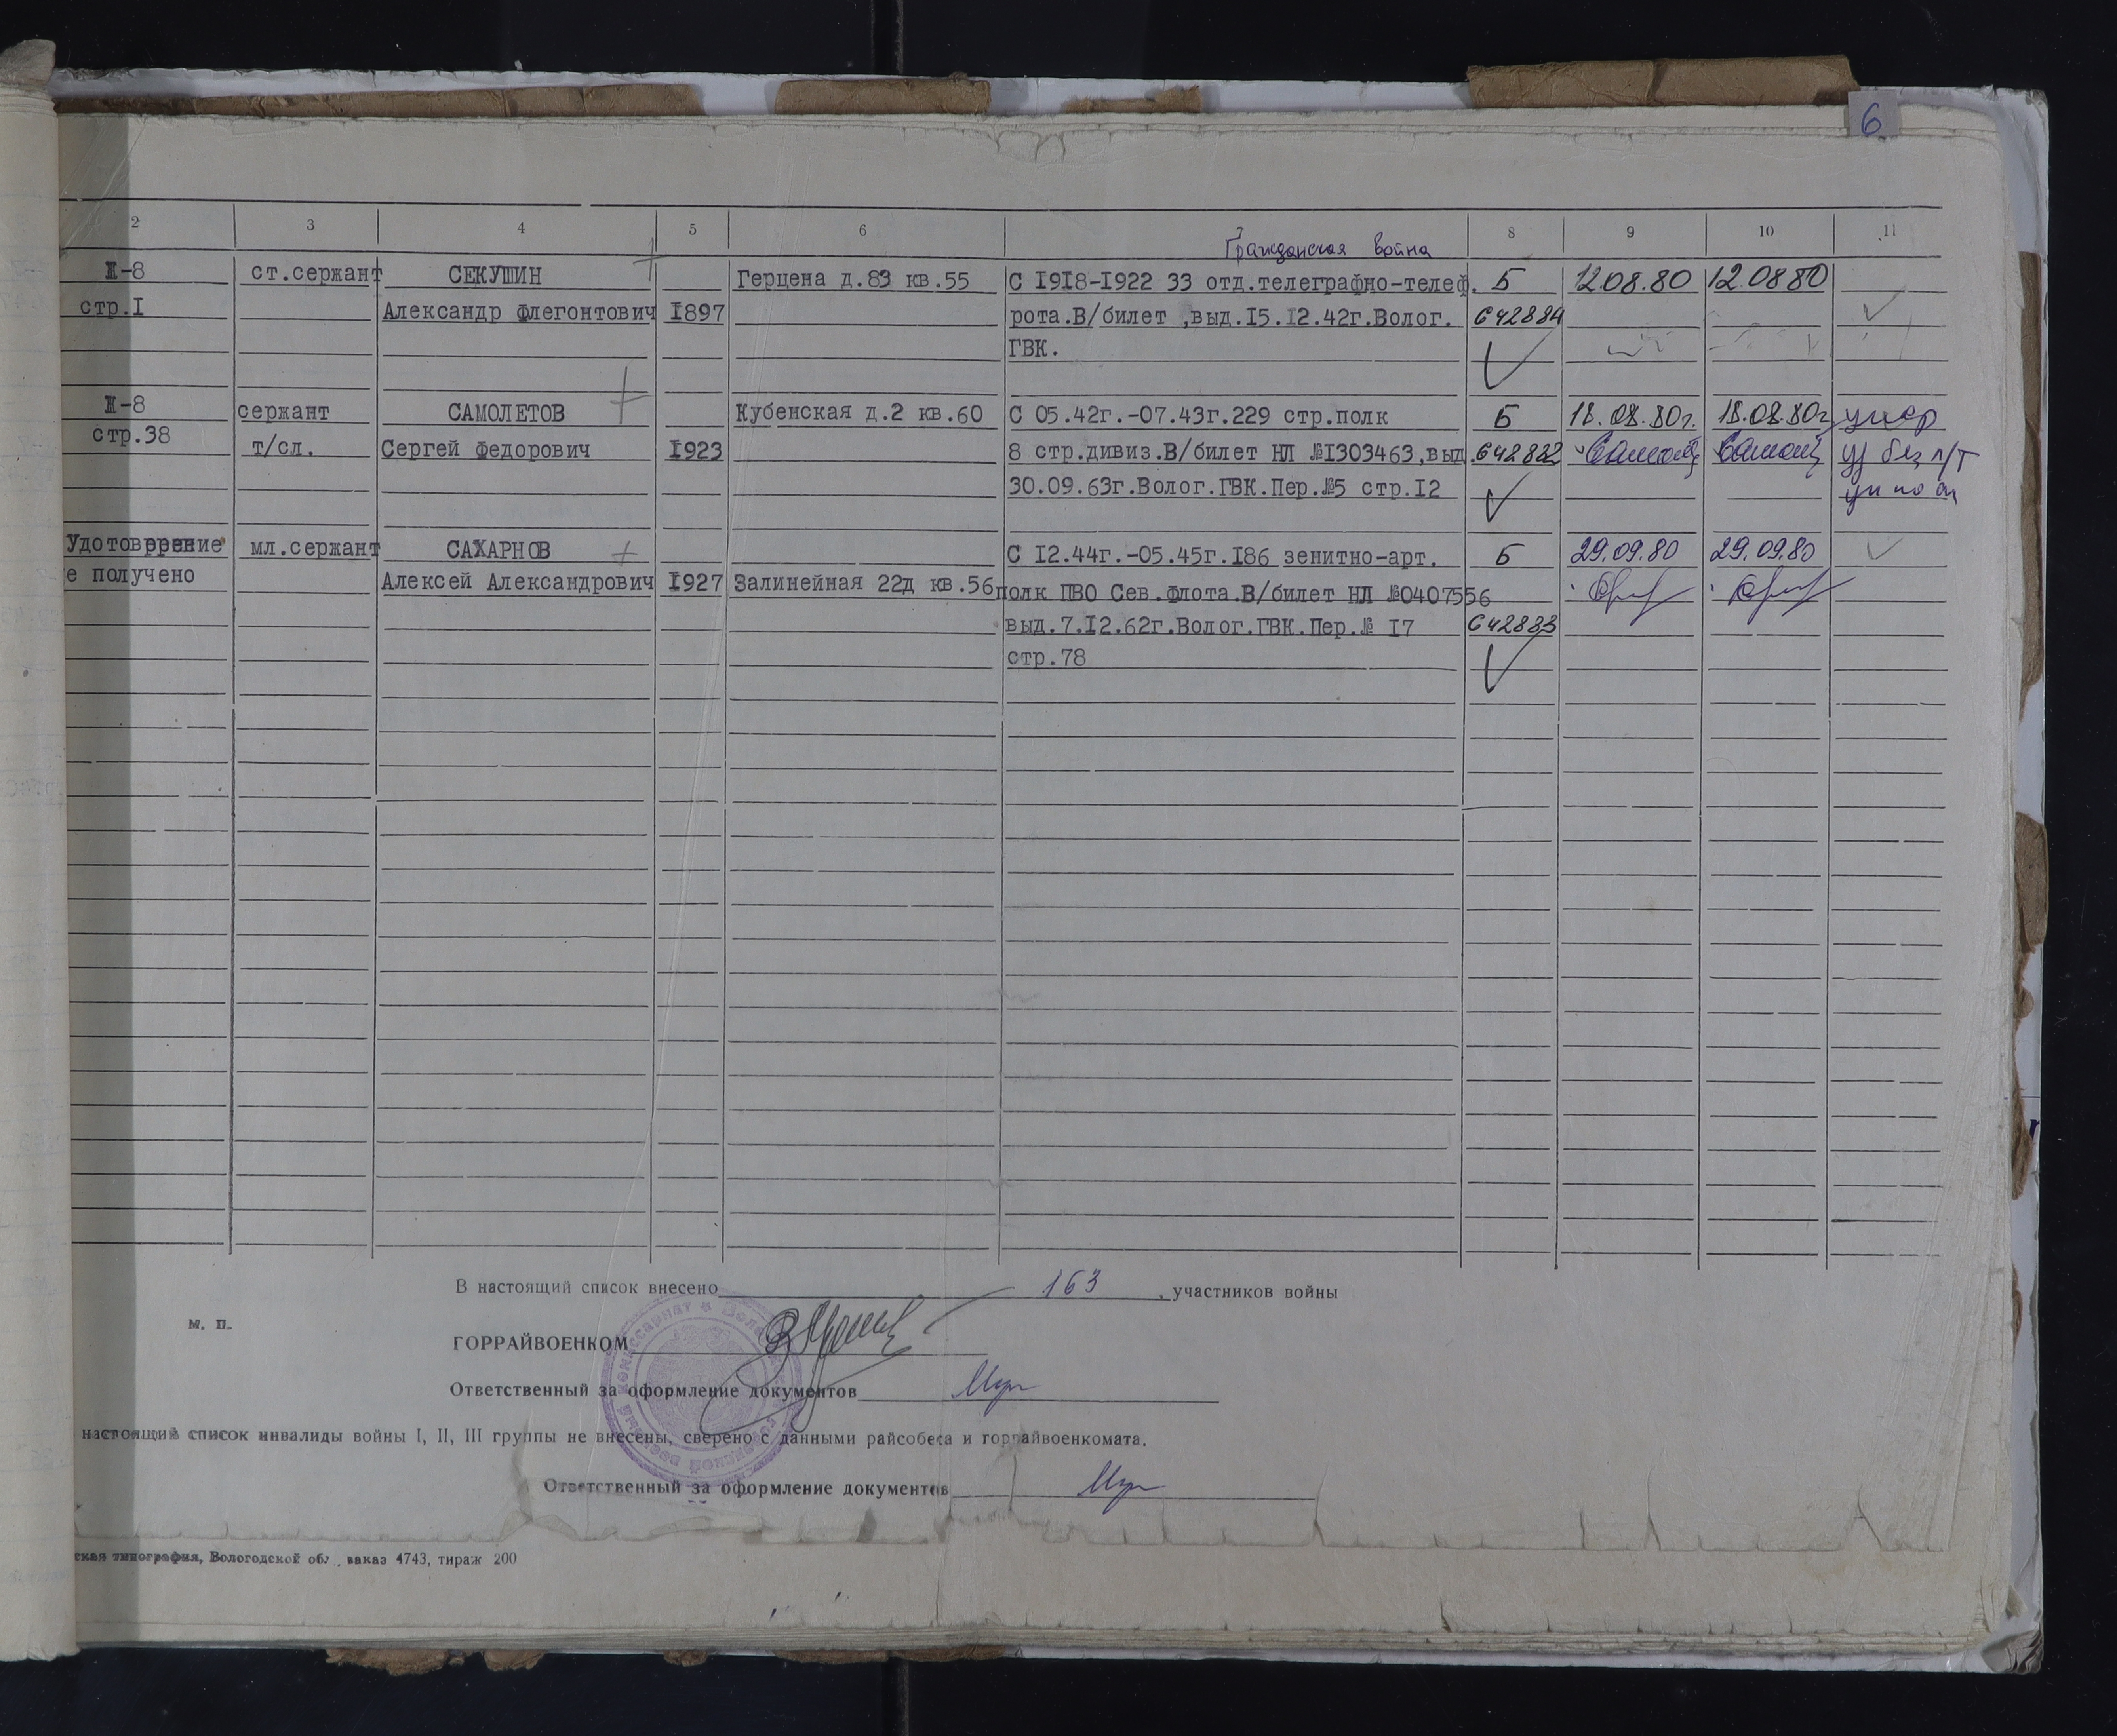 6
2 3 4 5 6 7 8 9 10 11
Гражданская война
Ж-8 ст.сержант СЕКУШИН Герцена д.83 кв.55 С 1918-1922 33 отд.телеграфно-телеф. Б 12.08.80 12.08.80
стр.1 Александр Флегонтович 1897 рота.В/билет ,выд.15.12.42г.Волог. 642884
ГВК.
Ж-8 сержант САМОЛЕТОВ Кубенская д.2 кв.60 С 05.42г.-07.43г.229 стр.полк Б 18.08.80г. 18.08.80г умер
стр.38 т/сл. Сергей Федорович 1923 8 стр.дивиз.В/билет НЛ №1303463,выд. 642882
30.09.63г.Волог.ГВК.Пер.№5 стр.12
Удотоврение мл.сержант САХАРНОВ С 12.44г.-05.45г.186 зенитно-арт. Б 29.09.80 29.09.80
е получено Алексей Александрович 1927 Залинейная 22д кв.56 полк ПВО Сев.Флота.В/билет НЛ №0407556
выд.7.12.62г.Волог.ГВК.Пер.№ 17 642883
стр.78
В настоящий список внесено 163 участников войны
м. п.
ГОРРАЙВОЕНКОМ
Ответственный за оформление документов
настоящий список инвалиды войны I, II, III группы не внесены, сверено с данными райсобеса и горрайвоенкомата.
Ответственный за оформление документов
ская типография, Вологодской обл., заказ 4743, тираж 200